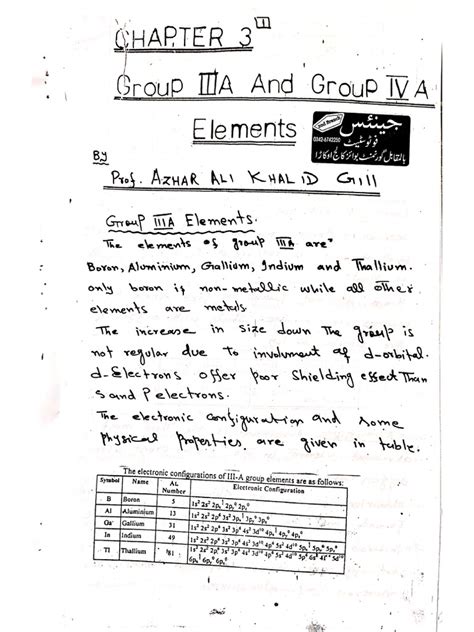 1
CHAPTER 3
Group IIIA And Group IVA
Elements
جینئس
فوٹوسٹیٹ
0342-6742250
بالمقابل گورنمنٹ بوائز کالج اوکاڑا
By
Prof. AZHAR ALI KHALID Gill
Group IIIA Elements.
The elements of group IIIA are
Boron, Aluminium, Gallium, Indium and Thallium.
only boron is non-metallic while all other
elements are metals.
The increase in size down The group is
not regular due To involvment of d-orbital.
d-Electrons offer poor Shielding effect Than
S and P electrons.
The electronic configuration and some
Physical Properties are given in table.
The electronic configurations of III-A group elements are as follows:
Symbol Name At. Number Electronic Configuration
B Boron 5 1s² 2s² 2pₓ¹ 2pᵧ⁰ 2p_z⁰
Al Aluminium 13 1s² 2s² 2p⁶ 3s² 3pₓ¹ 3pᵧ⁰ 3p_z⁰
Ga Gallium 31 1s² 2s² 2p⁶ 3s² 3p⁶ 4s² 3d¹⁰ 4pₓ¹ 4pᵧ⁰ 4p_z⁰
In Indium 49 1s² 2s² 2p⁶ 3s² 3p⁶ 4s² 3d¹⁰ 4p⁶ 5s² 4d¹⁰ 5pₓ¹ 5pᵧ⁰ 5p_z⁰
Tl Thallium 81 1s² 2s² 2p⁶ 3s² 3p⁶ 4s² 3d¹⁰ 4p⁶ 5s² 4d¹⁰ 5p⁶ 6s² 4f¹⁴ 5d¹⁰
6pₓ¹ 6pᵧ⁰ 6p_z⁰